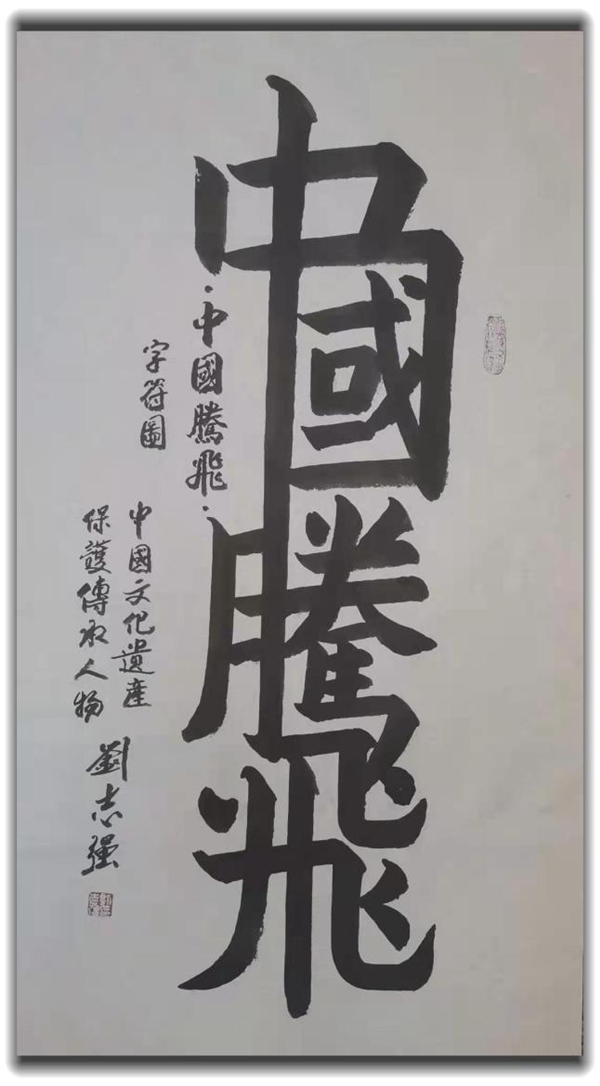 中國騰飛
·中國騰飛·
字符圖
中國文化遺産
保護傳承人物
劉志強